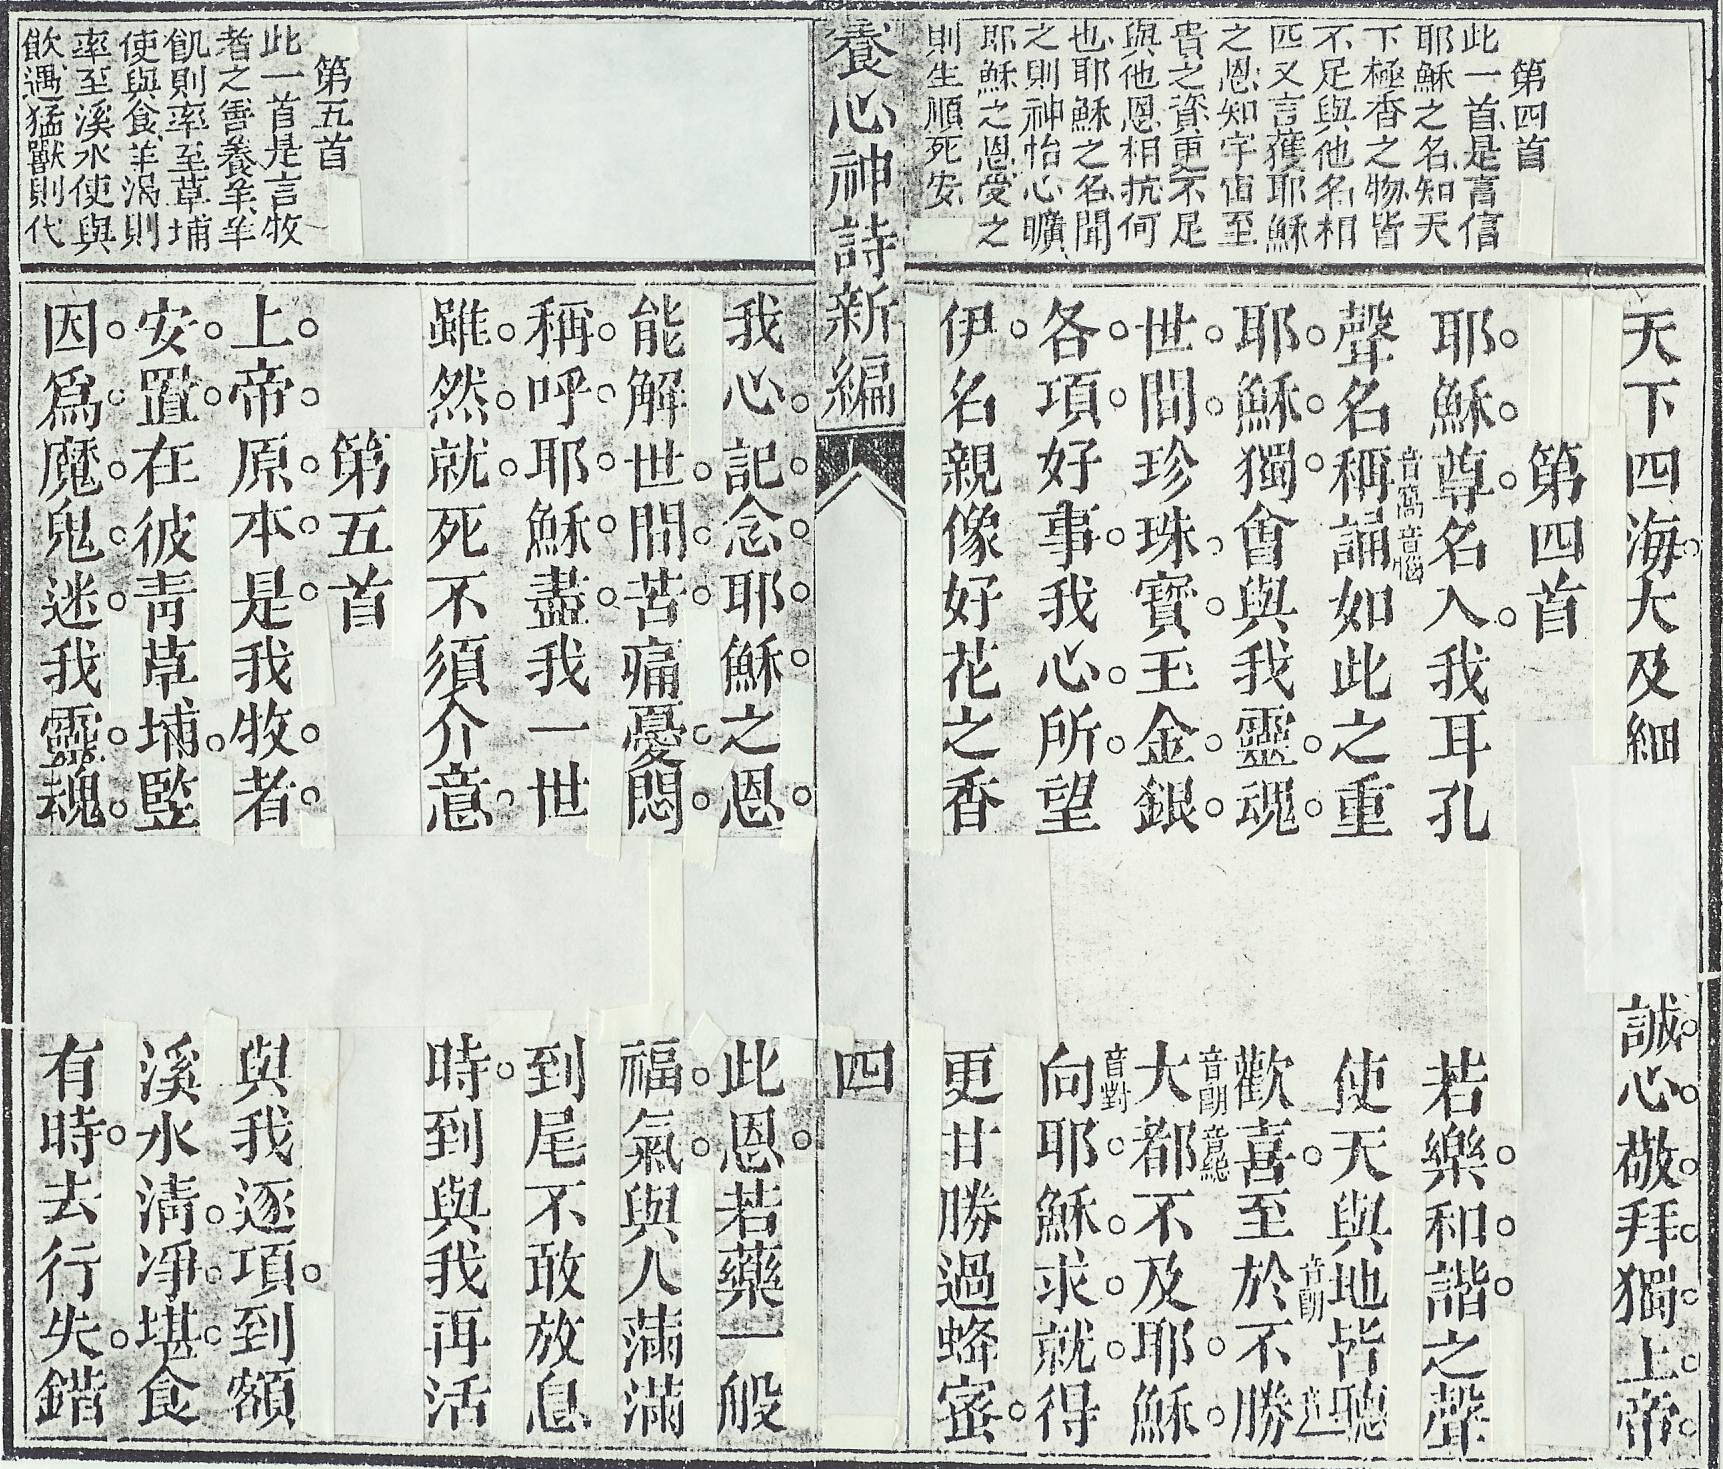 第四首
此一首是言信
耶穌之名知天
下極香之物皆
不足與他名相
匹又言獲耶穌
之恩知宇宙至
貴之資更不足
與他恩相抗何
也耶穌之名聞
之則神怡心曠
耶穌之恩受之
則生順死安
天下四海大及細 誠心敬拜獨上帝
第四首
耶穌尊名入我耳孔 若樂和諧之聲
聲名稱誦如此之重 使天與地皆聽
耶穌獨會與我靈魂 歡喜至於不勝
世間珍珠寶玉金銀 大都不及耶穌
各項好事我心所望 向耶穌求就得
伊名親像好花之香 更甘勝過蜂蜜
養心神詩新編 四
我心記念耶穌之恩 此恩若藥一般
能解世間苦痛憂悶 福氣與人滿滿
稱呼耶穌盡我一世 到尾不敢放息
雖然就死不須介意 時到與我再活
第五首
此一首是言牧
者之善養羊羊
飢則率至草埔
使與食羊渴則
率至溪水使與
飲遇猛獸則代
第五首
上帝原本是我牧者 與我逐項到額
安置在彼青草埔墘 溪水清凈堪食
因為魔鬼迷我靈魂 有時去行失錯